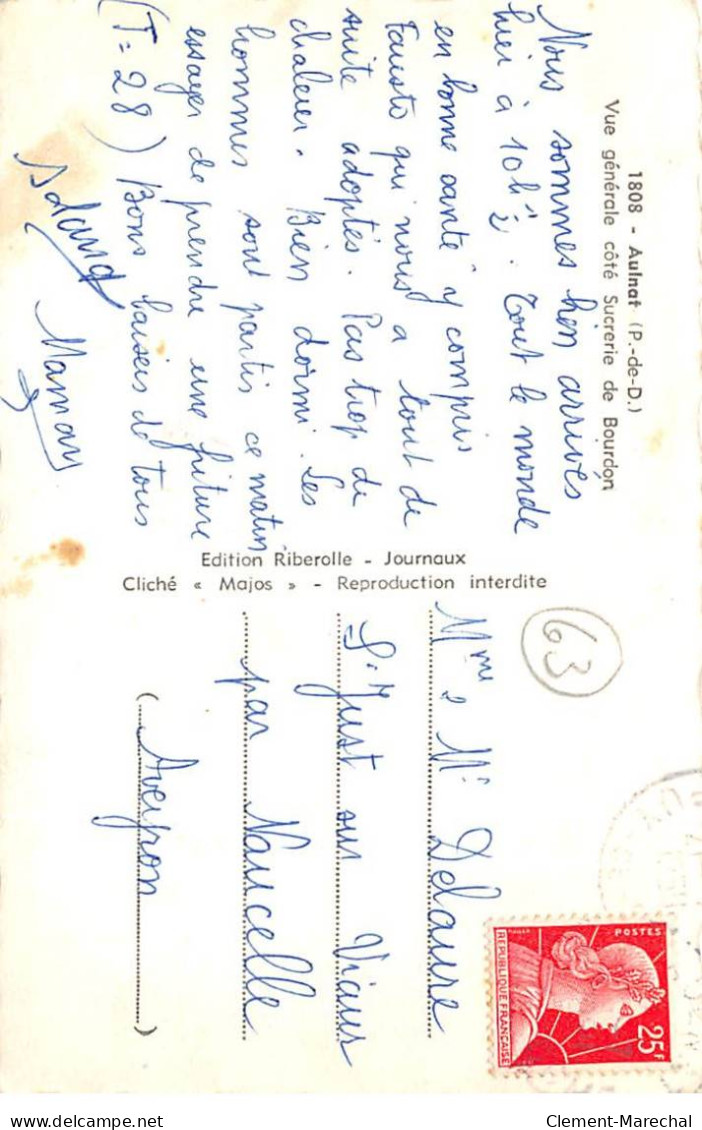 1808 - Aulnat (P.-de-D.)
Vue générale côté Sucrerie de Bourdon
Nous sommes bien arrivés
hier à 10h ½. Tout le monde
en bonne santé y compris
Fausto qui nous a tout de
suite adoptés. Pas trop de
chaleur. Bien dormi. Les
hommes sont partis ce matin
essayer de prendre une friture
(T=28) Bons baisers de tous
Mamay
Edition Riberolle - Journaux
Cliché « Majos » - Reproduction interdite
63
Mme & Mr Delaure
St Just sur Viaur
par Naucelle
(Aveyron)
POSTES
25F
REPUBLIQUE FRANÇAISE
MULLER
Clement-Marechal